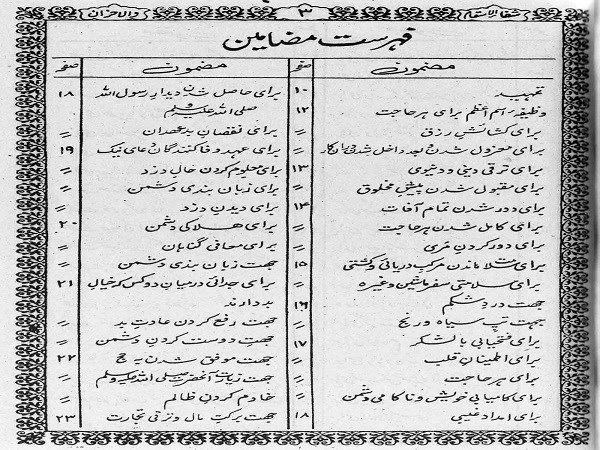 شفاء الاسقام ۳ والاحزان
فہرست مضامین
مضمون صفحہ
تمہید ۱۰
وظیفہ اسم اعظم برای ہر حاجت ۱۲
برای کشائش رزق 〃
برای معزول شدن بعد داخل شدن
برای ترقی دینی و دنیوی ۱۳
برای مقبول شدن پیش مخلوق 〃
برای دور شدن تمام آفات ۱۴
برای کامل شدن ہر حاجت 〃
برای دور کردن 〃
برای سلامت ماندن مرکب دریائی و کشتی ۱۵
برای سلامتی سفر ماشین وغیرہ 〃
جہت درد شکم ۱۶
جہت تپ سیاہ و رنج 〃
برای فتحیابی بالشکر ۱۷
برای اطمینان قلب 〃
برای ہر حاجت 〃
برای کامیابی خویش و ناکامی دشمن 〃
برای امداد غیبی ۱۸
مضمون صفحہ
برای حاصل شدن دیدار رسول اللہ ۱۸
صلی اللہ علیہ وسلم
برای نقصان بدعہدان 〃
برای عہد وفا کنندگان عای نیک ۱۹
برای معلوم کردن حال دزد 〃
برای زبان بندی دشمن 〃
برای دیدن دزد 〃
برای ہلاکی دشمن ۲۰
برای معافی گناہان 〃
جہت زبان بندی دشمن 〃
برای جدائی درمیان دو کس کہ خیال ۲۱
بد دارند
جہت رفع کردن عادت بد 〃
جہت دوست کردن دشمن 〃
جہت موفق شدن بہ حج ۲۲
جہت زیارت آنحضرت صلی اللہ علیہ وسلم 〃
خادم کردن ظالم 〃
جہت برکت مال و ترقی تجارت ۲۳